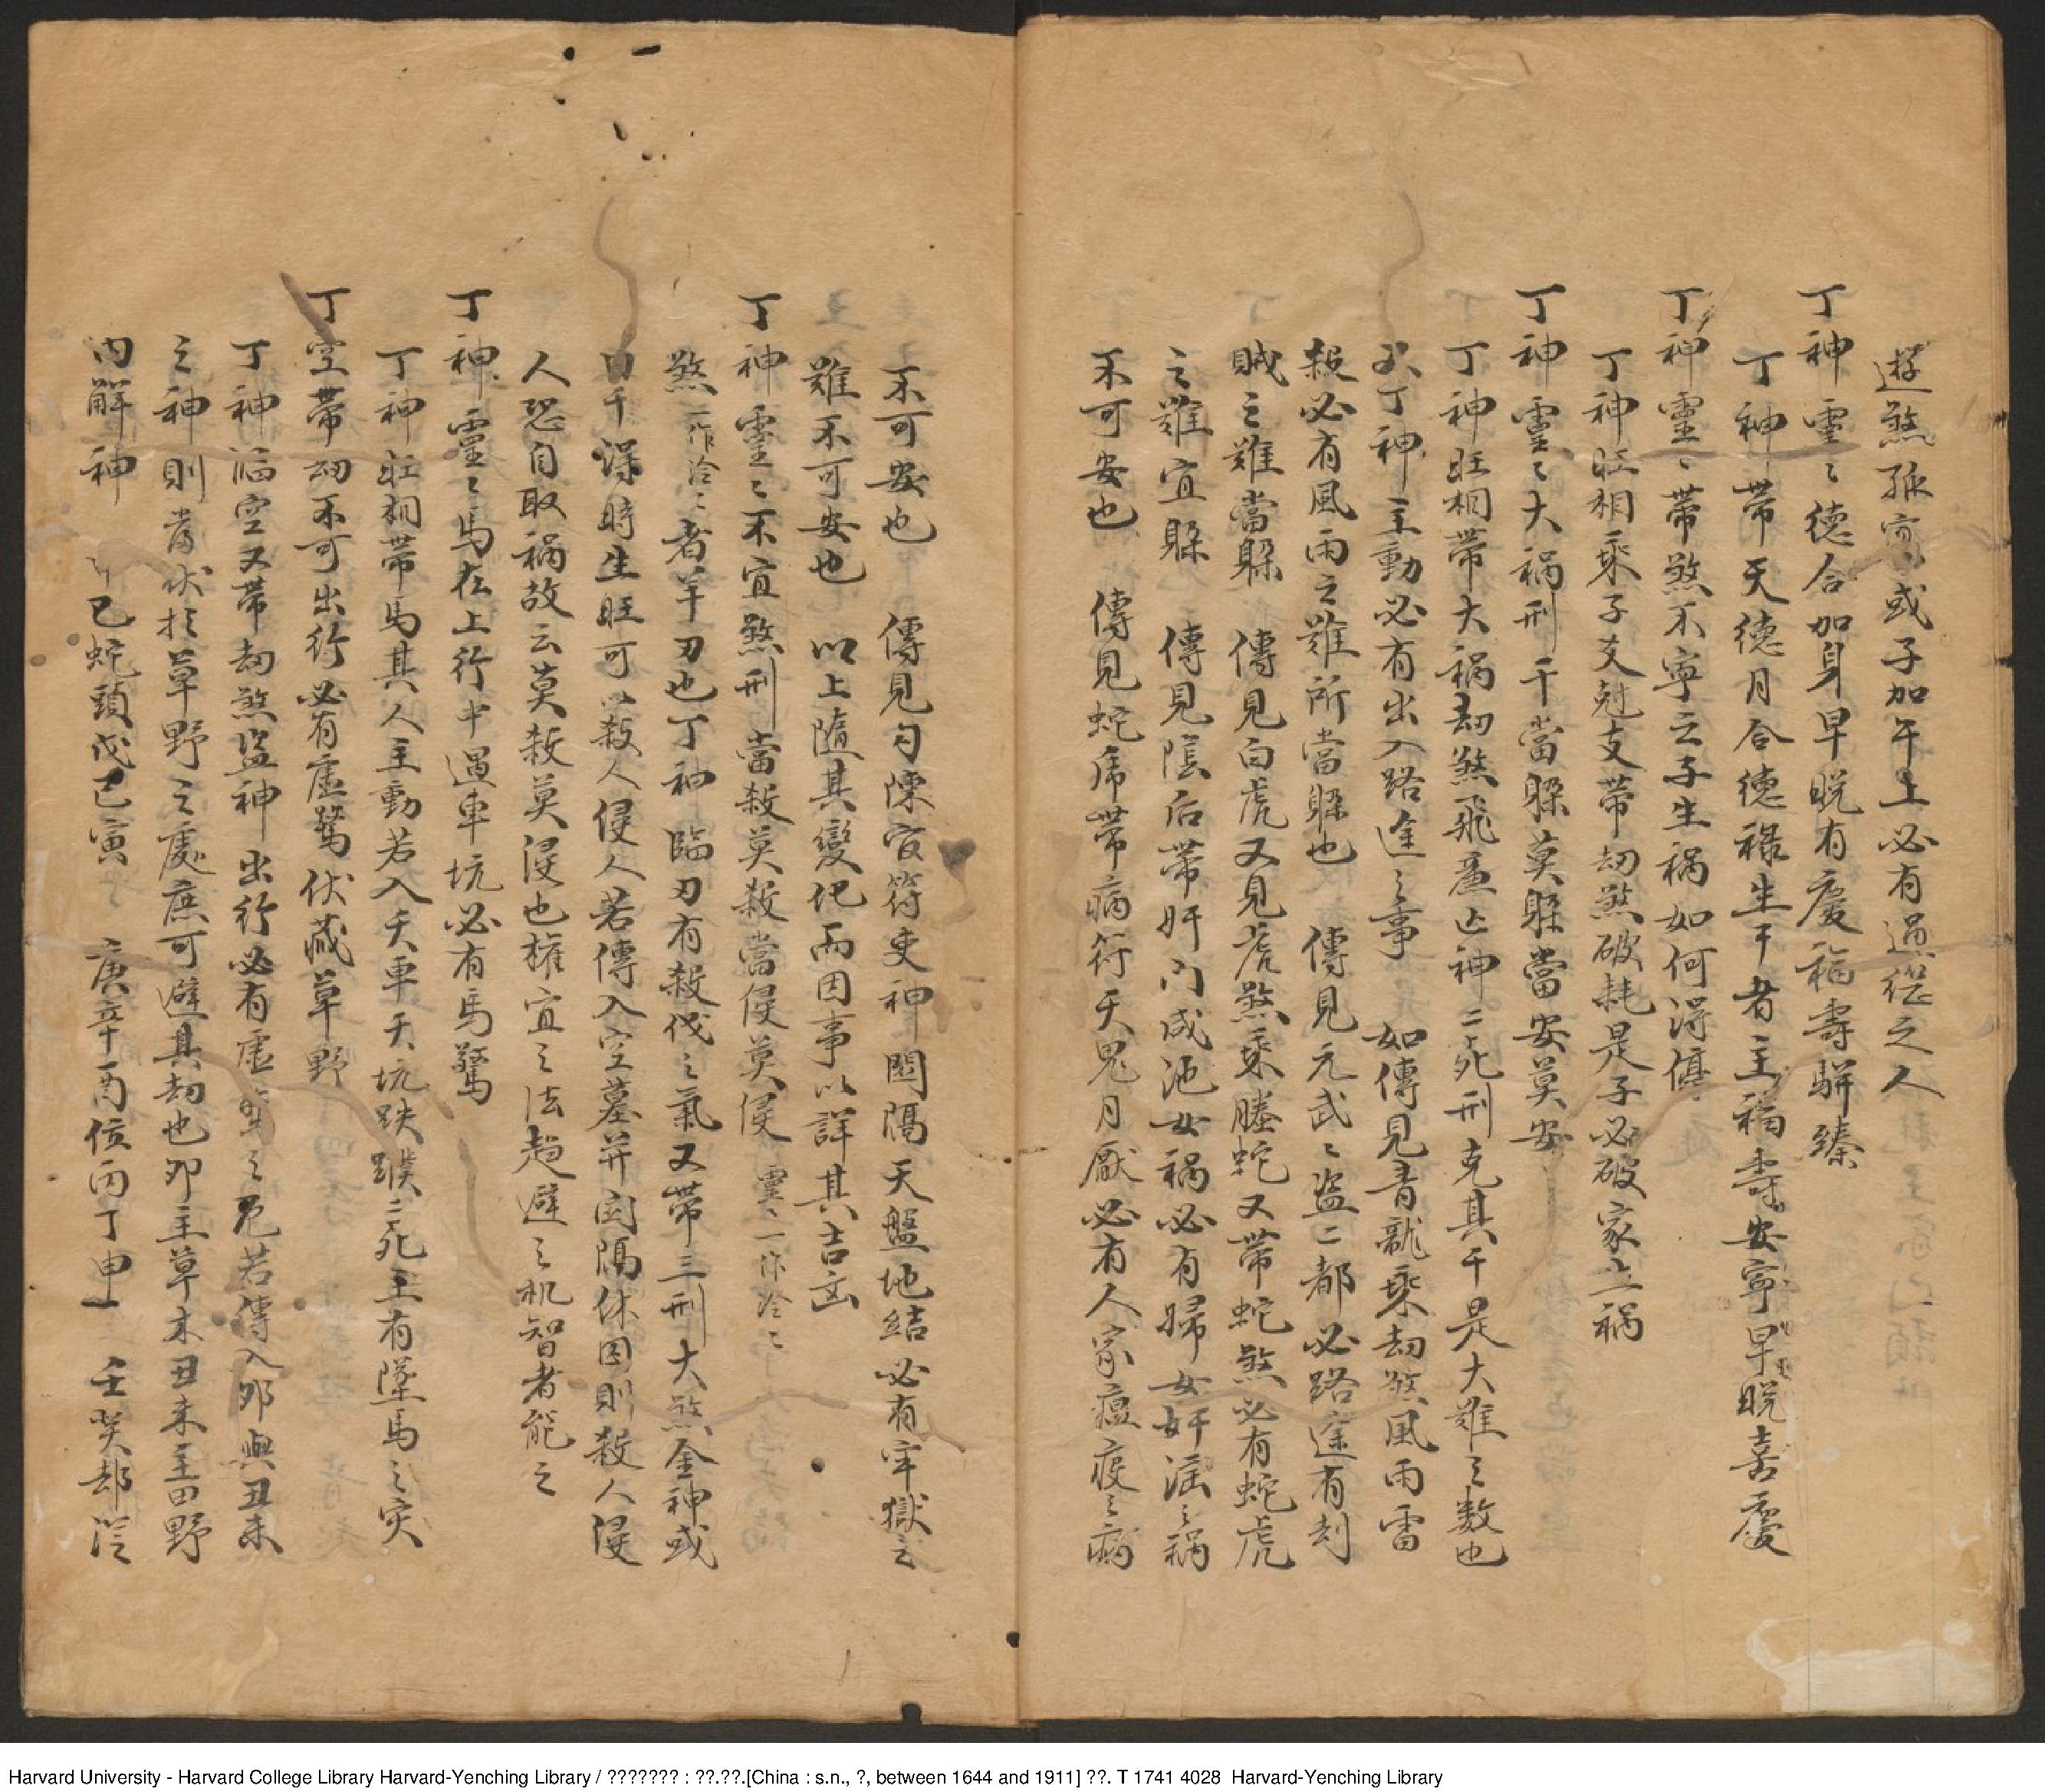 遊煞孤寡或子加午上必有過從之人
丁神靈〻德合加身早晚有慶福壽駢臻
丁神帶天德月合德祿生干者主福壽安寧早晚喜慶
丁神靈〻帶煞不寧云子生禍如何得停
丁神旺相乘子爻尅支帶刼煞破耗是子必破家之禍
丁神靈〻大禍刑干當躱莫躱當安莫安
丁神旺相帶大禍刼煞飛廉亡神二死刑克其干是大難之数也
又丁神主動必有出入路途之事 如傳見青龍乘刼煞風雨雷
殺必有風雨之難所當躱也 傳見元武〻盜二都必路途有刦
賊之難當躱 傳見白虎又見虎煞乘螣蛇又帶蛇煞必有蛇虎
之難宜躱 傳見陰后帶奸门咸池女禍必有婦女奸淫之禍
不可安也 傳見蛇虎帶病符天鬼月厭必有人家瘟疫之病
不可安也 傳見勾陳官符吏神関隔天盤地結必有牢獄之
難不可安也 以上隨其變化而因事以詳其吉凶
丁神靈〻不宜煞刑當殺莫殺當侵莫侵 靈〻一作冷〻
煞一作冷〻者羊刃也丁神臨刃有殺伐之氣又帶三刑大煞金神或
日干課時生旺可以殺人侵人若傳入空墓并関隔休囚則殺人侵
人恐自取禍故云莫殺莫侵也權宜之法趋避之机智者能之
丁神靈〻馬在上行中過車坑必有馬驚
丁神旺相帶馬其人主動若入天車天坑跌蹼二死主有墜馬之灾
丁空帶刼不可出行必有虛驚伏藏草野
丁神临空又帶刼煞盜神出行必有虛驚之危若傳入卯與丑未
之神則當伏扵草野之處庶可避其刼也卯主草木丑未主田野
内解神 甲巳蛇頭戊己寅 庚辛酉位丙丁申 壬癸却從